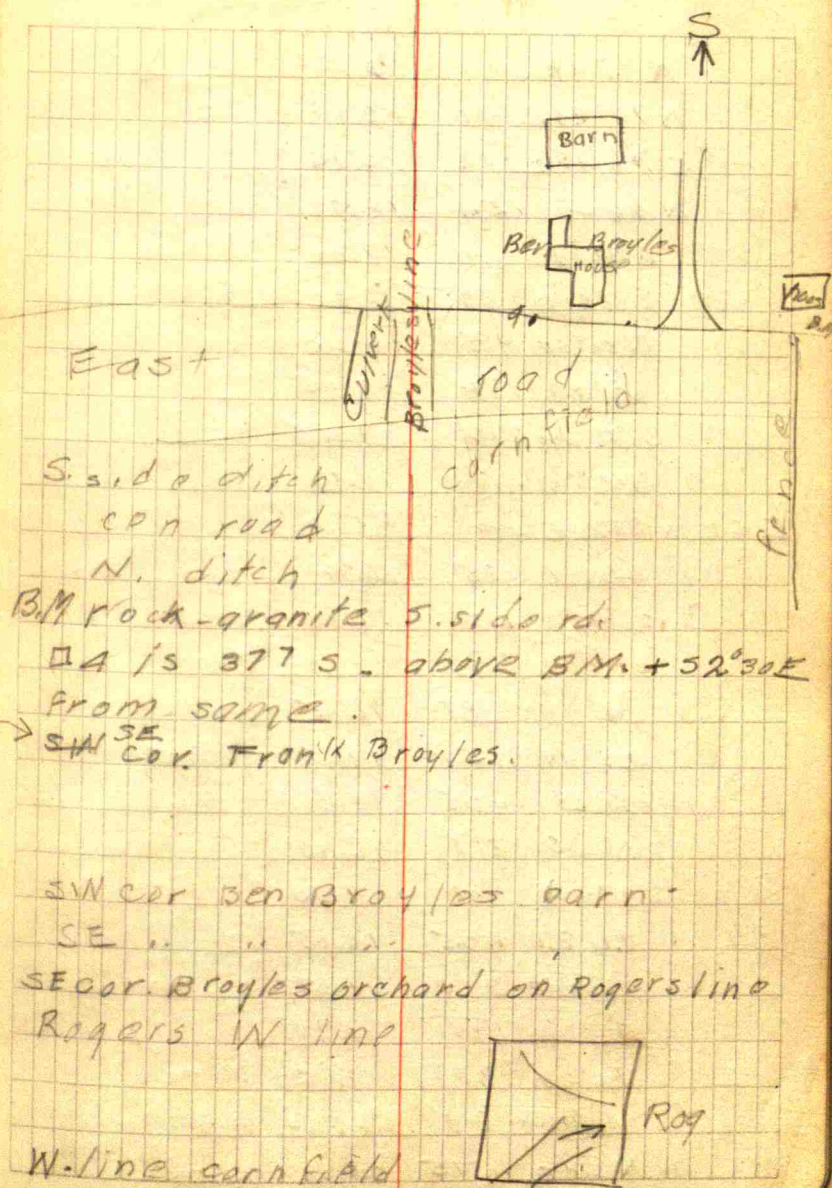 S
Barn
Ben Broyles
House
B.M
Culvert
Broyles line
East
road
cornfield
fence
S. side ditch
cen road
N. ditch
B.M rock-granite S. side rd.
□4 is 377 S. above BM. + S2°30E
from same.
SW SE
Cor. Frank Broyles.
SW cor Ben Broyles barn.
SE " " " "
SE cor. Broyles orchard on Rogers line
Rogers W line
Rog
W. line cornfield